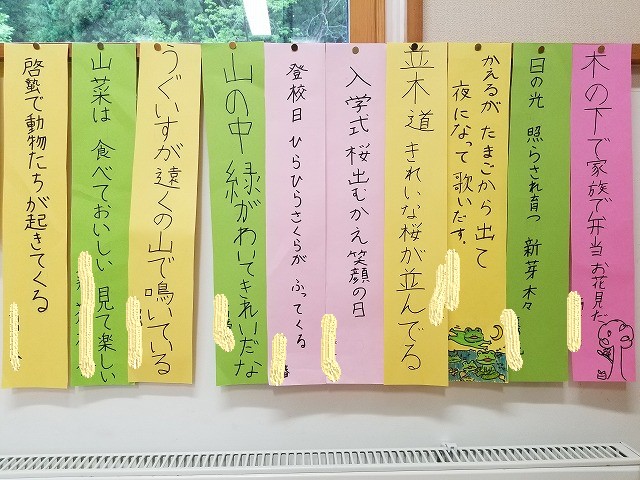 木の下で家族で弁当お花見だ
日の光 照らされ育つ 新芽木々
かえるが たまごから出て
夜になって歌いだす。
並木道 きれいな桜が並んでる
入学式 桜出むかえ笑顔の日
登校日 ひらひらさくらが ふってくる
山の中 緑がわいてきれいだな
うぐいすが遠くの山で鳴いている
山菜は 食べておいしい 見て楽しい
啓蟄で動物たちが起きてくる